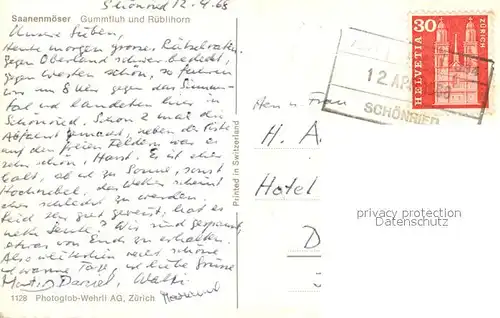 Schönried 12.4.68
Saanenmöser Gummfluh und Rüblihorn
Unsere Lieben,
Heute morgen grosses Rätselraten
gegen Oberland schwer bedeckt,
gegen werden schön, so fuhren
wir um 8 Uhr gegen das Simmen-
tal und landeten hier in
Schönried. Schon 2 mal die
Abfahrt gemacht, neben der Piste
auf den freien Feldern war es
sehr schön, Harst. Es ist aber
kalt, ab zu Sonne, sonst
Hochnebel, das Wetter scheint
eher schlecht zu werden.
Seid Ihr gut gereist, hat es
nette Leute? Wir sind gespannt,
etwas von Euch zu erhalten.
Also weiterhin recht schöne
und warme Tage, und liebe Grüsse
Daniel, Walti
1128 Photoglob-Wehrli AG, Zürich
Printed in Switzerland
30
HELVETIA
ZÜRICH
12 APR
SCHÖNRIED
Herr u. Frau
H. A.
Hotel
D
privacy protection
Datenschutz